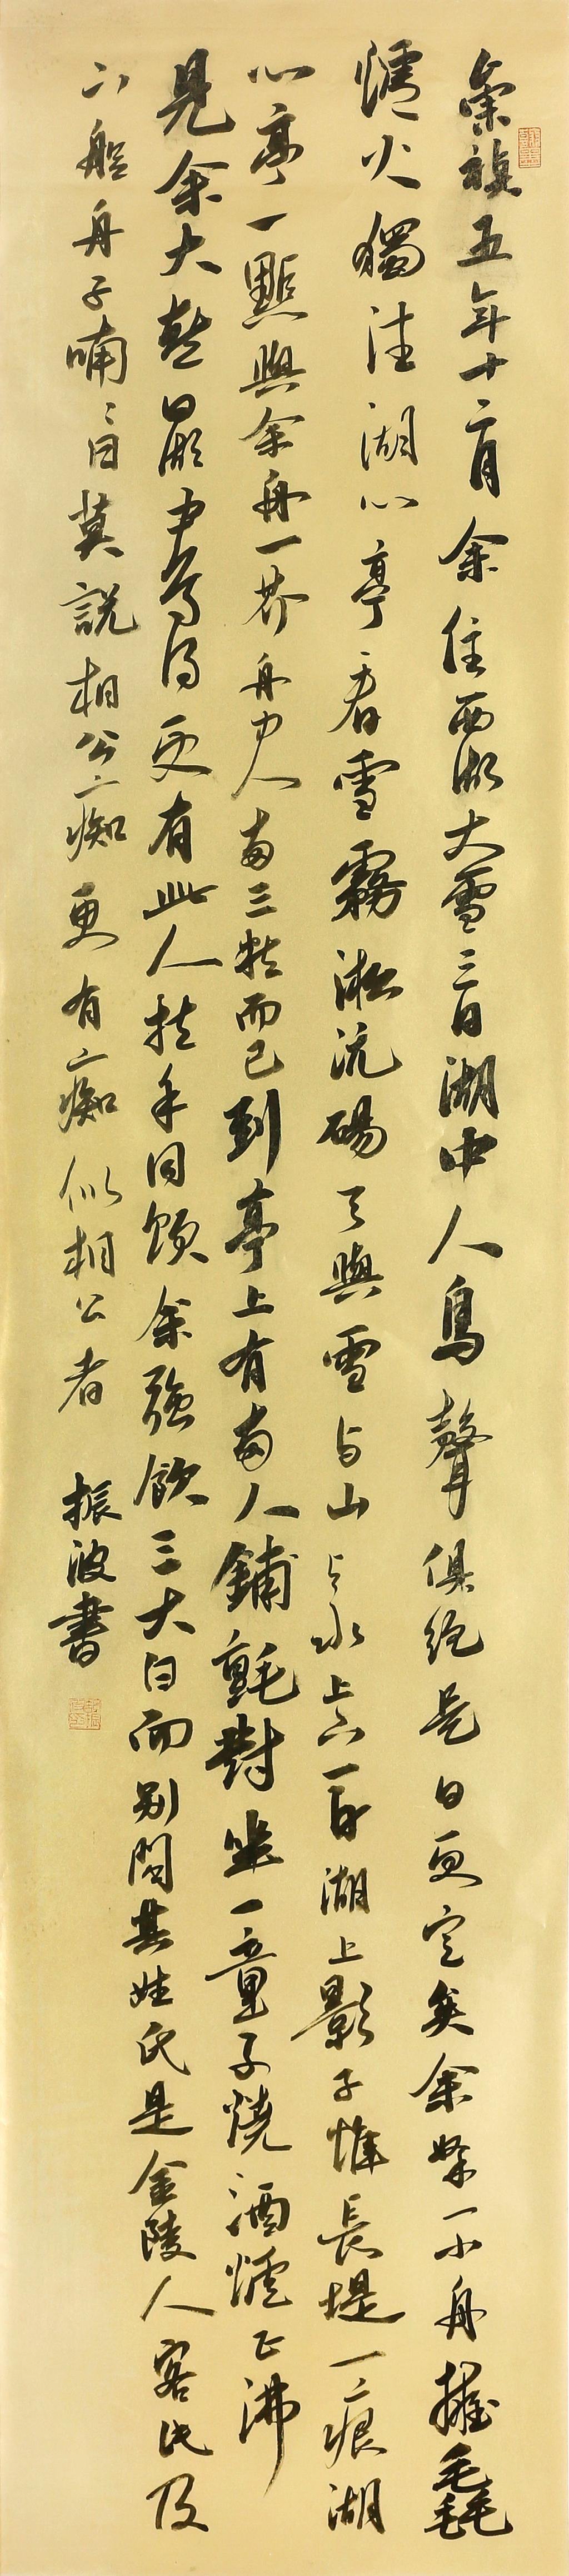 崇禎五年十二月余住西湖大雪三日湖中人鳥聲俱絕是日更定矣余拏一小舟擁毳
爐火獨往湖心亭看雪霧淞沆碭天與雪與山與水上下一白湖上影子惟長堤一痕湖
心亭一點與余舟一芥舟中人兩三粒而已到亭上有兩人鋪氈對坐一童子燒酒爐正沸
見余大喜曰湖中焉得更有此人拉手同飲余強飲三大白而別問其姓氏是金陵人客此及
下船舟子喃喃曰莫說相公痴更有痴似相公者 振波書